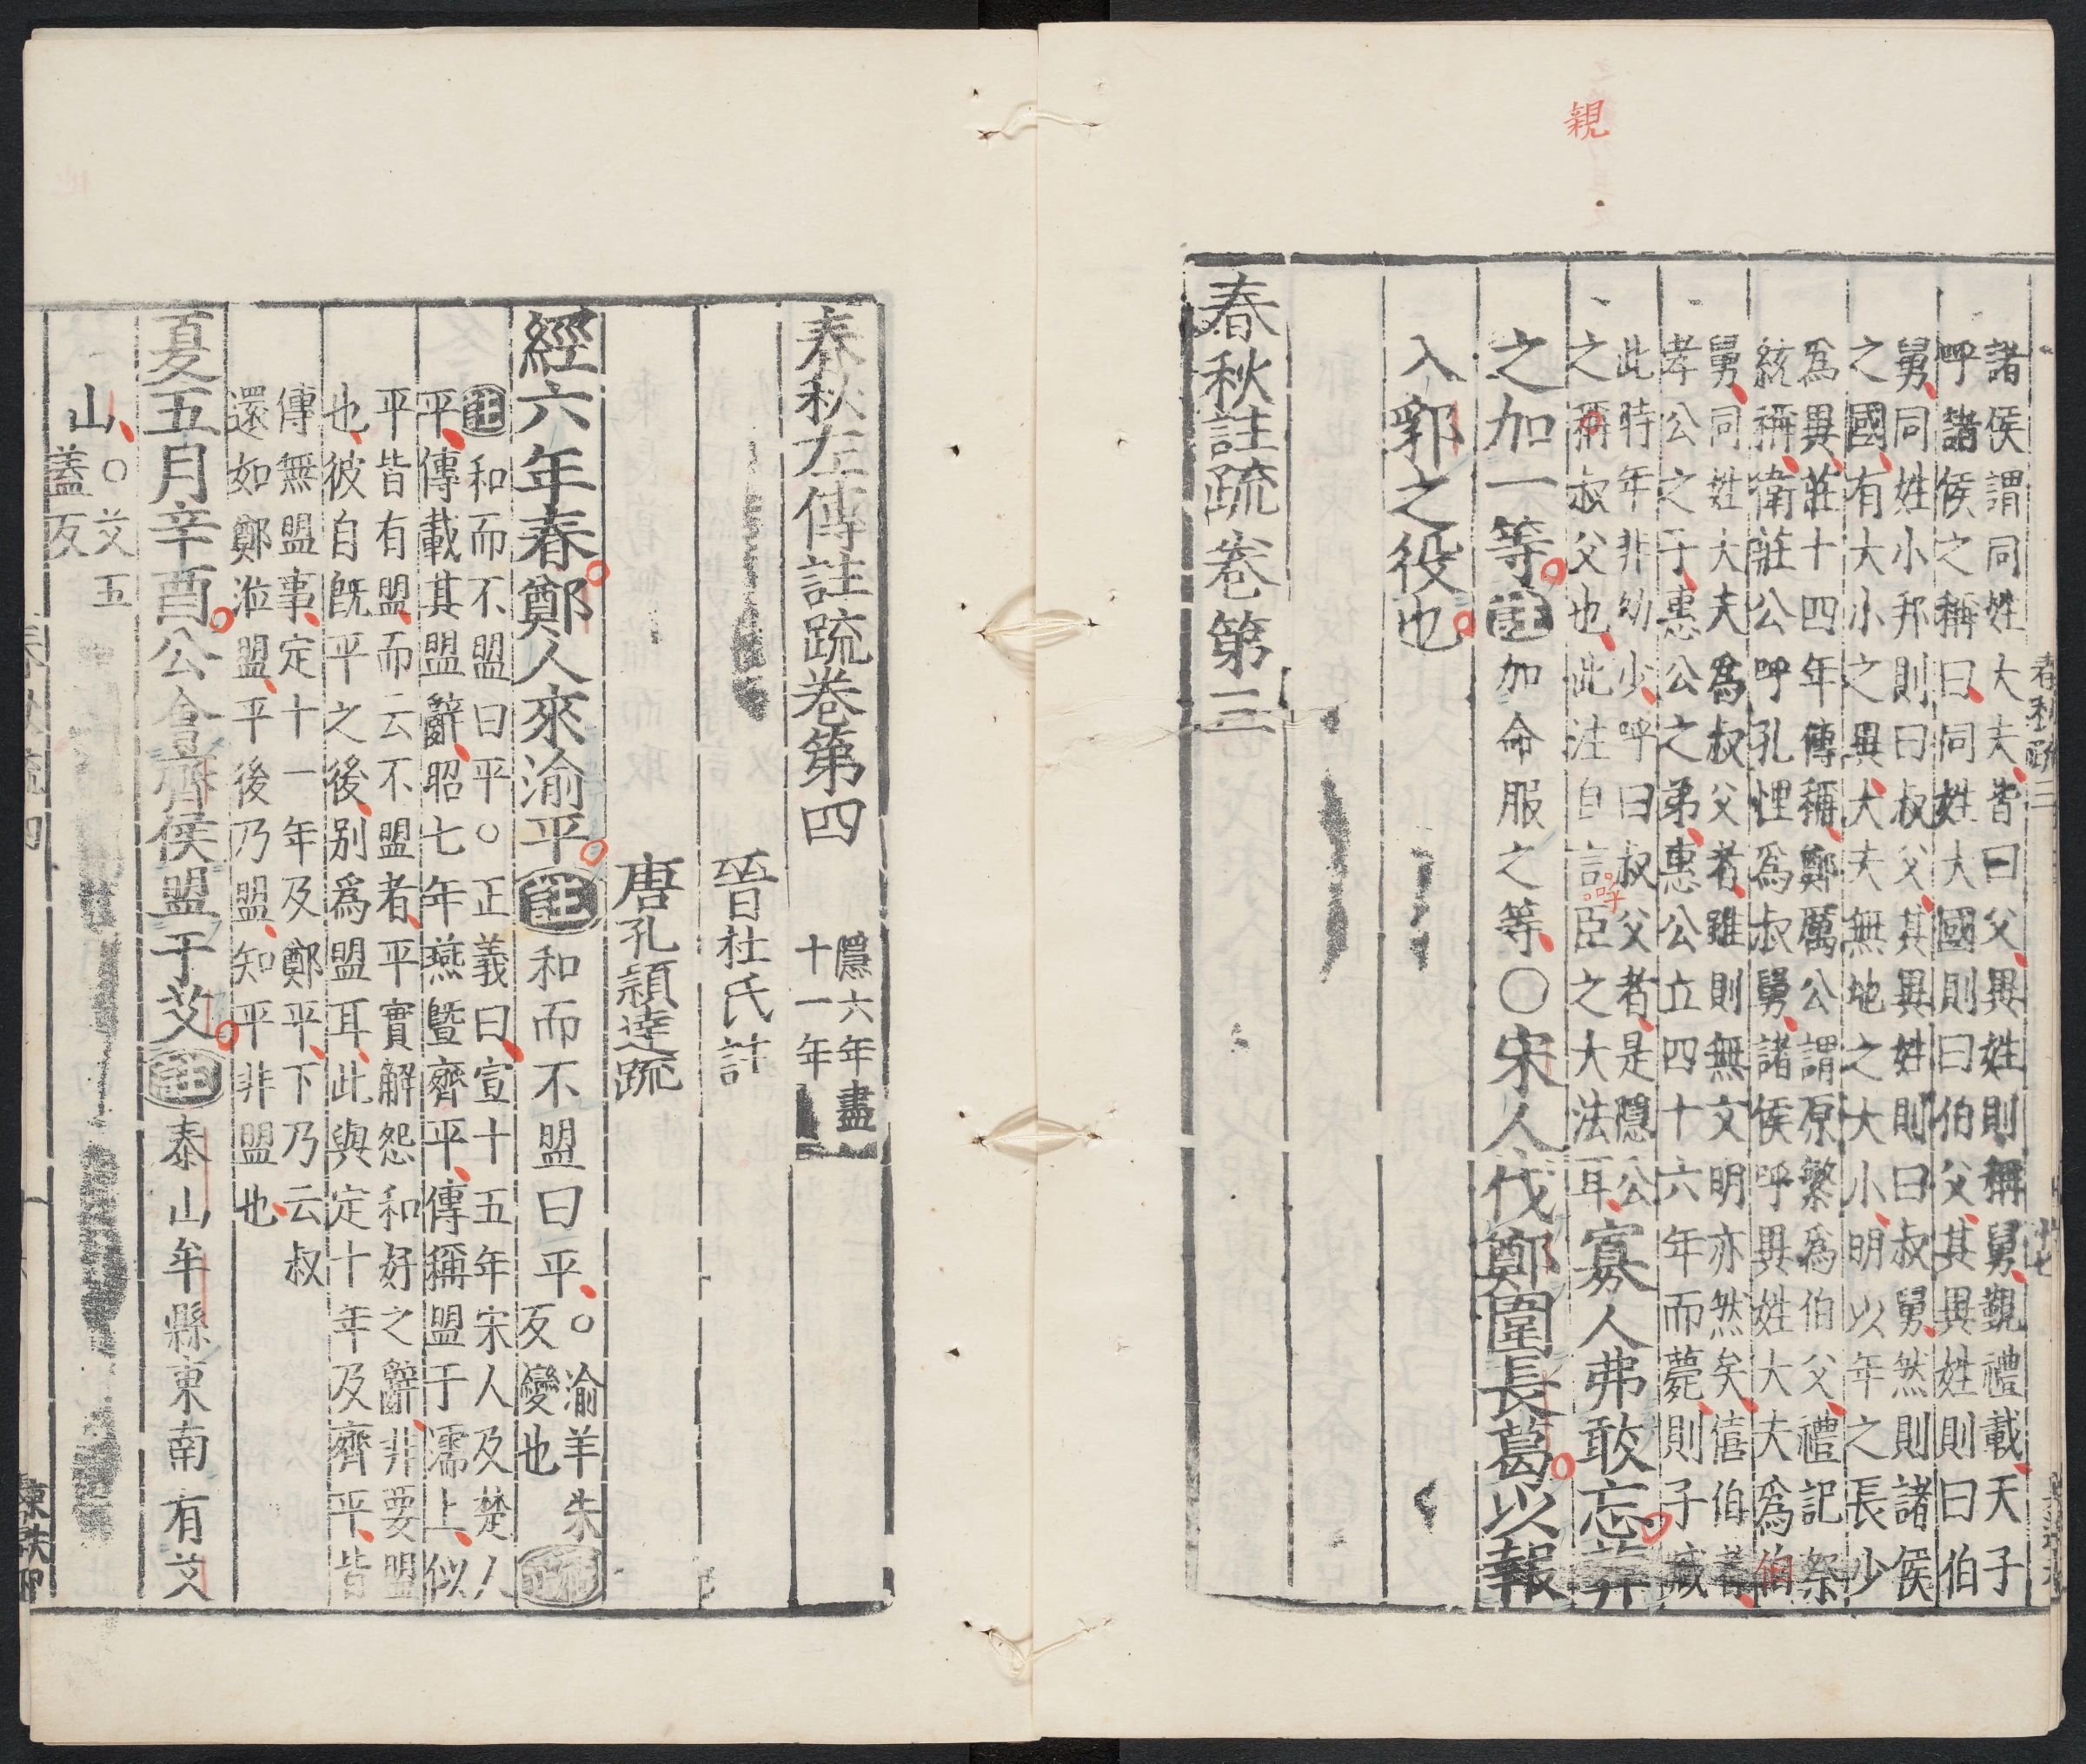 親
諸侯謂同姓大夫皆曰父異姓則稱舅覲禮載天子
呼諸侯之稱曰同姓大國則曰伯父其異姓則曰伯
舅同姓小邦則曰叔父其異姓則曰叔舅然則諸侯
之國有大小之異大夫無地之大小明以年之長少
為異莊十四年傳稱鄭厲公謂原繁為伯父禮記祭
統稱衛莊公呼孔悝為叔舅諸侯呼異姓大夫為伯
舅同姓大夫為叔父者雖則無文明亦然矣僖伯者
孝公之子惠公之弟惠公立四十六年而薨則子臧
此時年非幼少呼曰叔父者是隱公
之稱叔父也此注自言呼臣之大法耳寡人弗敢忘葬
之加一等註加命服之等○宋人伐鄭圍長葛以報
入郛之役也
春秋註疏卷第三
春秋疏三
廿七
春秋左傳註疏卷第四
隱六年盡
十一年
晉杜氏註
唐孔穎達疏
經六年春鄭人來渝平註和而不盟曰平○渝羊朱
反變也
註和而不盟曰平○正義曰宣十五年宋人及楚人
平傳載其盟辭昭七年燕暨齊平傳稱盟于濡上似
平皆有盟而云不盟者平實解怨和好之辭非要盟
也彼自旣平之後別為盟耳此與定十年及齊平皆
傳無盟事定十一年及鄭平下乃云叔
還如鄭涖盟平後乃盟知平非盟也
夏五月辛酉公會齊侯盟于艾註泰山牟縣東南有艾
山○艾五
蓋反